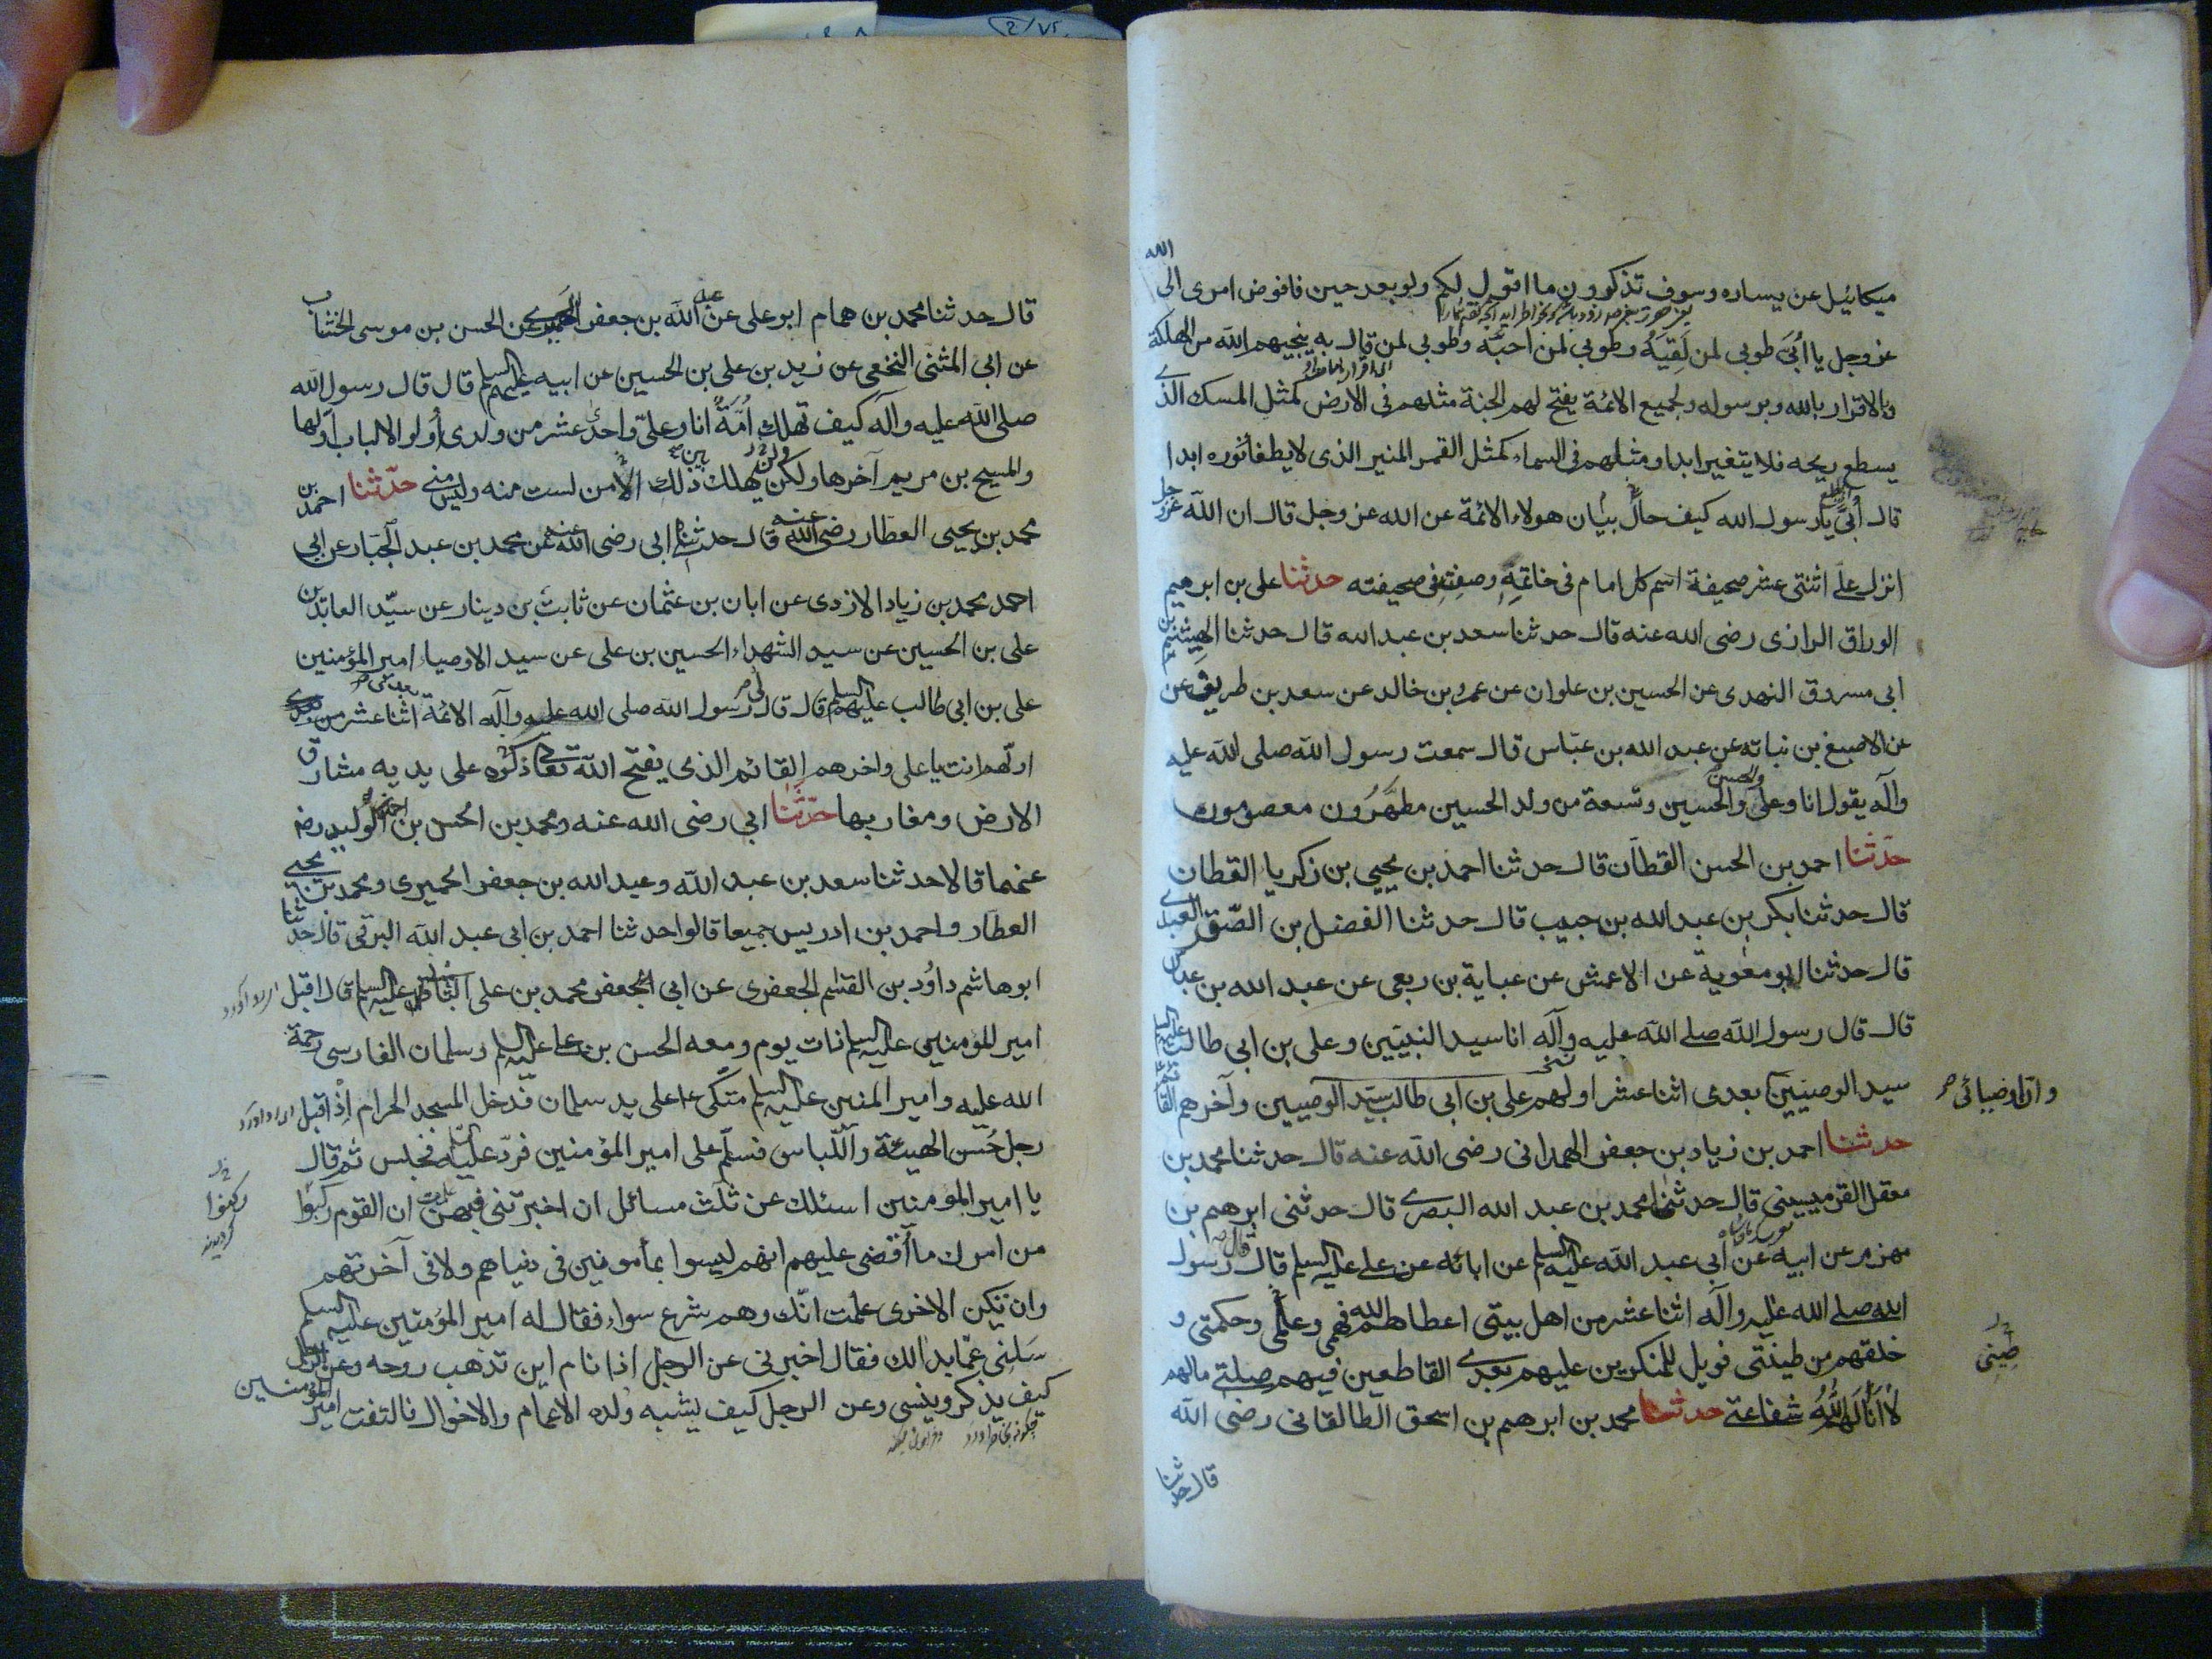 ميكائيل عن يساره وسوف تذكرون ما اقول لكم ولو بعد حين فافوض امرى الى الله
عز وجل يا أبىّ طوبى لمن لَقِيَهُ وطوبى لمن احبّه وطوبى لمن قال به ينجيهم الله من الهلكة
وبالاقرار بالله وبرسوله ولجميع الائمة يفتح لهم الجنة مثلهم فى الارض كمثل المسك الذى
يسطع ريحه فلا يتغير ابدا ومثلهم فى السماء كمثل القمر المنير الذى لا يطفا نوره ابدا
قال أبىّ يا رسول الله كيف حال بيان هولاء الائمة عن الله عز وجل قال ان الله عز وجل
انزل علىّ اثنتى عشر صحيفة اسم كل امام فى خاتمه وصفته فى صحيفته حدثنا على بن ابرهيم
الوراق الرازى رضى الله عنه قال حدثنا سعد بن عبد الله قال حدثنا الهيثم بن
ابى مسروق النهدى عن الحسين بن علوان عن عمرو بن خالد عن سعد بن طريف عن
عن الاصبغ بن نباته عن عبد الله بن عباس قال سمعت رسول الله صلى الله عليه
وآله يقول انا وعلى والحسن والحسين وتسعة من ولد الحسين مطهَّرُون معصومون
حدّثنا احمد بن الحسن القطان قال حدثنا احمد بن يحيى بن زكريا القطان
قال حدثنا بكر بن عبد الله بن حبيب قال حدثنا الفضل بن الصّقر العبدى
قال حدثنا ابو معوية عن الاعمش عن عباية بن ربعى عن عبد الله بن عباس
قال قال رسول الله صلى الله عليه وآله انا سيد النبيّين وعلى بن ابى طالب
سيد الوصيّين بعدى اثنا عشر اولهم على بن ابى طالب سيّد الوصيين وآخرهم القائم
وان اوصيائى
حدثنا احمد بن زياد بن جعفر الهمدانى رضى الله عنه قال حدثنا محمد بن
معقل القرميسينى قال حدثنا محمد بن عبد الله البصرى قال حدثنى ابرهيم بن
مهزم عن ابيه عن ابى عبد الله عليه السلم عن ابائه عن على عليه السلم قال قال رسول
الله صلى الله عليه وآله اثنا عشر من اهل بيتى اعطاهم الله فهمى وعلمى وحكمتى و
خلقهم من طينتى فويل للمنكرين عليهم بعدى القاطعين فيهم صلتى مالهم
طينى
لا أنالهم الله شفاعتى حدثنا محمد بن ابرهيم بن اسحق الطالقانى رضى الله
قال حدثنا
قال حدثنا محمد بن همام ابو على عن عبد الله بن جعفر الحميرى عن الحسن بن موسى الخشاب
عن ابى المثنى النخعى عن زيد بن على بن الحسين عن ابيه عليهم السلم قال قال رسول الله
صلى الله عليه وآله كيف تهلك اُمّةٌ انا وعلىّ واحد عشر من ولدى أولو الالباب اولها
والمسيح بن مريم آخرها ولكن يهلك بين ذلك من لست منه وليس منى حدّثنا احمد بن
محمد بن يحيى العطار رضى الله عنه قال حدثنا ابى رضى الله عنه عن محمد بن عبد الجبار عن ابى
احمد محمد بن زياد الازدى عن ابان بن عثمان عن ثابت بن دينار عن سيّد العابدين
على بن الحسين عن سيد الشهداء الحسين بن على عن سيد الاوصياء امير المؤمنين
على بن ابى طالب عليهم السلم قال قال لى رسول الله صلى الله عليه وآله الائمة اثنا عشر من بعدى
اولهم انت يا على واخرهم القائم الذى يفتح الله تعالى ذكره على يديه مشارق
الارض ومغاربها حدّثنا ابى رضى الله عنه ومحمد بن الحسن بن احمد بن الوليد رضى
عنهما قالا حدثنا سعد بن عبد الله وعبد الله بن جعفر الحميرى ومحمد بن يحيى
العطار واحمد بن ادريس جميعا قالوا حدثنا احمد بن ابى عبد الله البرقى قال حدثنا
ابو هاشم داوُد بن القسم الجعفرى عن ابى جعفر محمد بن على الثانى عليه السلم قال اقبل
امير المؤمنين عليه السلم ذات يوم ومعه الحسن بن على عليه السلم وسلمان الفارسى رحمة
الله عليه وامير المنين عليه السلم متكى على يد سلمان فدخل المسجد الحرام اذ اقبل
رجل حُسن الهيئة واللّباس فسلّم على امير المؤمنين فردّ عليه السلم فجلس ثم قال
يا امير المومنين اسئلك عن ثلث مسائل ان اخبرتنى فيهن ان القوم ركبوا
ركبوا
من امرك ما أقضى عليهم انهم ليسوا بمأمونين فى دنياهم ولا فى آخرتهم
وان تكن الاخرى علمت انّك وهم شرع سواء فقال له امير المؤمنين عليه السلم
سَلنى عمّا بدا لك فقال اخبرنى عن الرجل اذا نام اين تذهب روحه وعن الرجل
كيف يذكر وينسى وعن الرجل كيف يشبه ولده الاعمام والاخوال فالتفت امير المؤمنين